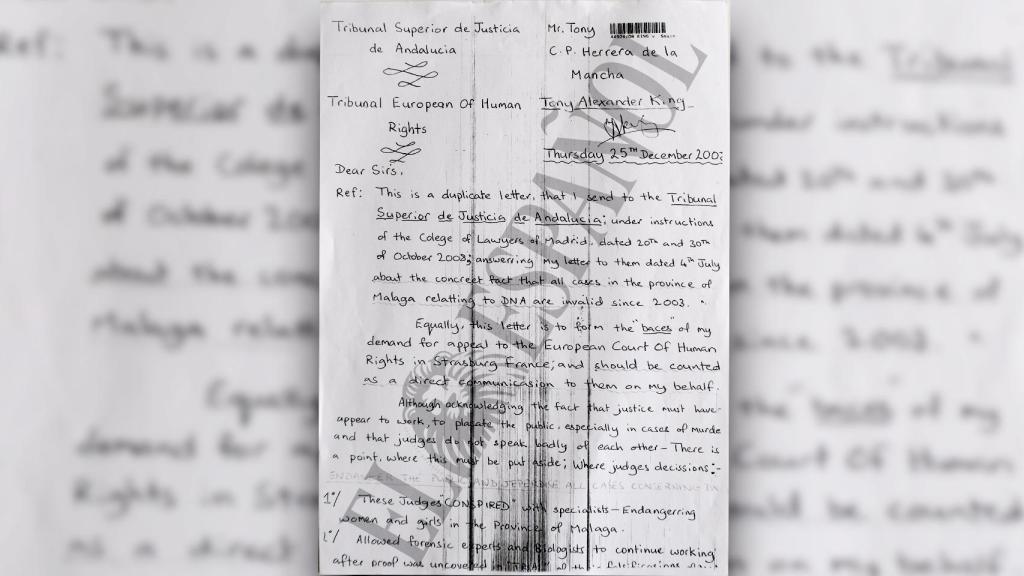 Tribunal Superior de Justicia
de Andalucia
Mr. Tony
C.P. Herrera de la
Mancha
Tribunal European Of Human
Rights
Tony Alexander King
Thursday 25TH December 200
Dear Sirs,
Ref: This is a duplicate letter, that I send to the Tribunal
Superior de Justicia de Andalucia; under instructions
of the Colege of Lawyers of Madrid, dated 20TH and 30TH
of October 2008; answerring my letter to them dated 4TH July
about the concreet fact that all cases in the province of
Malaga relatting to DNA are invalid since 2003.
Equally, this letter is to form the "baces" of my
demand for appeal to the European Court Of Human
Rights in Strasburg France; and should be counted
as a direct communicasion to them on my behalf.
Although acknowledging the fact that justice must have
appear to work, to placate the public, especially in cases of murde
and that judges do not speak badly of each other - There is
a point, where this must be put aside; Where judges decissions:-
ALL CASES CONSERNING
1º/ These Judges "CONSPIRED" with specialists - Endangerring
women and girls in the Province of Malaga.
Allowed forensic experts and Biologists to continue working
after proof was uncovered
EL ESPAÑOL